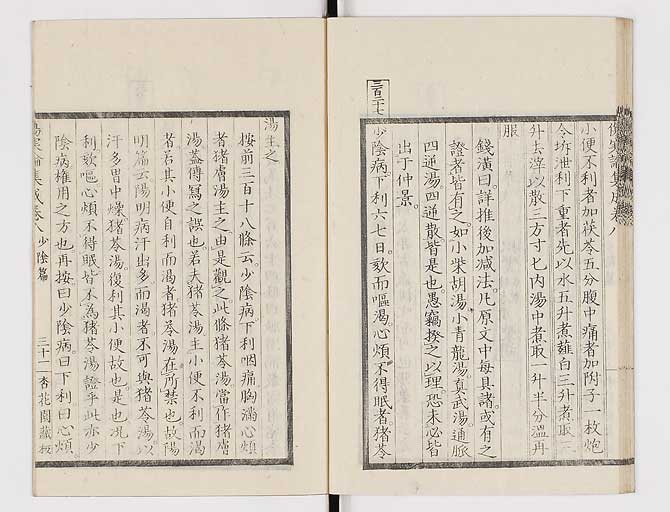 傷寒論集成卷八
小便不利者加茯苓五分腹中痛者加附子一枚炮
令坼泄利下重者先以水五升煮薤白三升煮取三
升去滓以散三方寸匕內湯中煮取一升半分溫再
服
錢潢曰詳推後加減法凡原文中每具諸或有之
證者皆有之如小柴胡湯小青龍湯真武湯通脈
四逆湯四逆散皆是也愚竊揆之以理恐未必皆
出于仲景
三百二十七
少陰病下利六七日欬而嘔渴心煩不得眠者猪苓
湯主之
按前三百十八條云少陰病下利咽痛胸滿心煩
者猪膚湯主之由是觀之此條猪苓湯當作猪膚
湯蓋傳寫之誤也若夫猪苓湯主小便不利而渴
者若其小便自利而渴者猪苓湯在所禁也故陽
明篇云陽明病汗出多而渴者不可與猪苓湯以
汗多胃中燥猪苓湯復利其小便故也是也况下
利欬嘔心煩不得眠皆不為猪苓湯證乎此亦少
陰病權用之方也再按曰少陰病曰下利曰心煩
傷寒論集成卷八 少陰篇 三十一 杏花園藏板